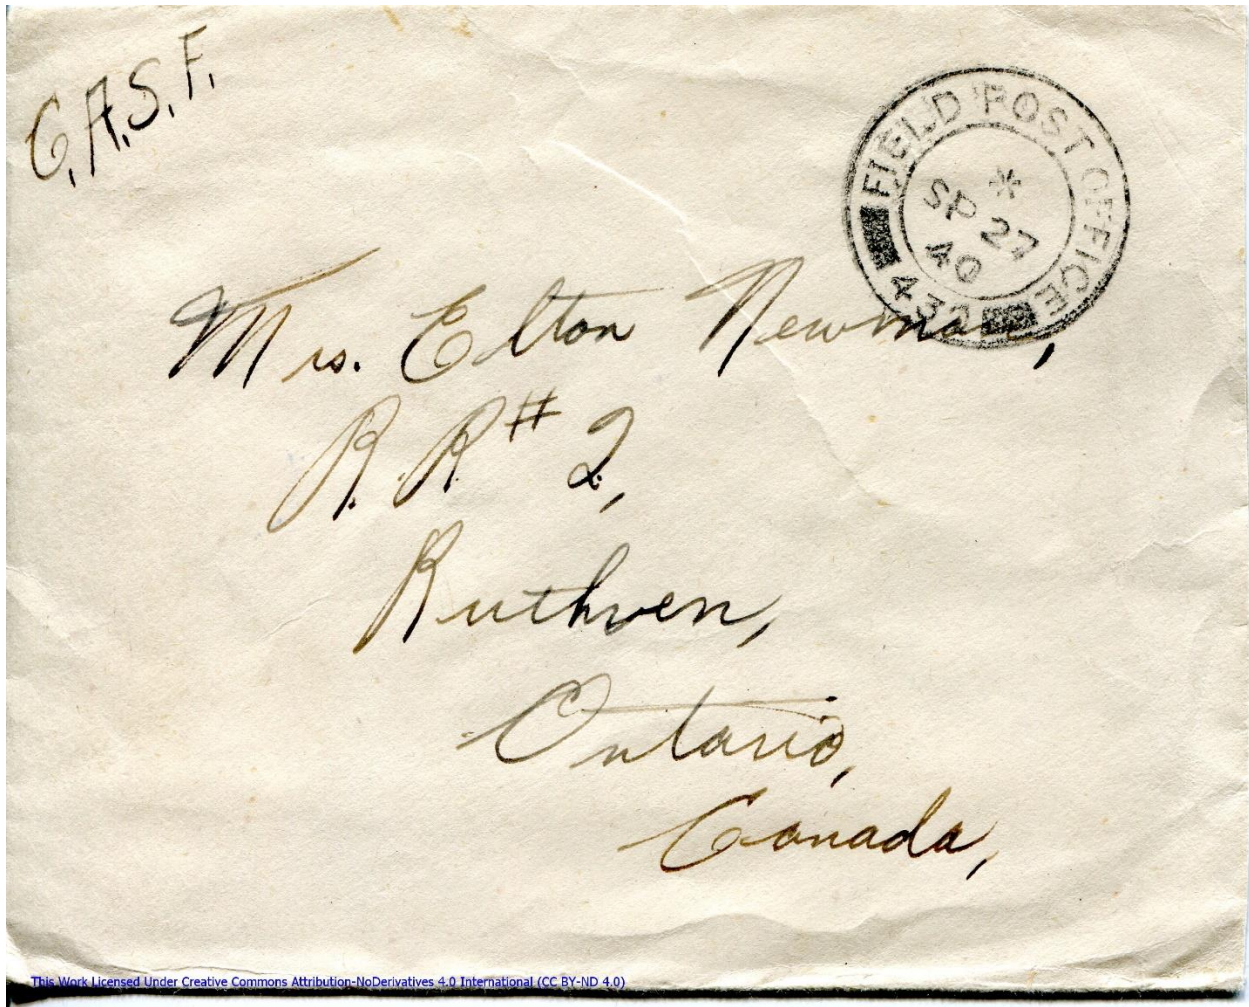 C.A.S.F.
FIELD POST OFFICE
*
SP 27
40
432
Mrs. Elton Newman,
R.R # 2,
Ruthven,
Ontario,
Canada,
This Work Licensed Under Creative Commons Attribution-NoDerivatives 4.0 International (CC BY-ND 4.0)